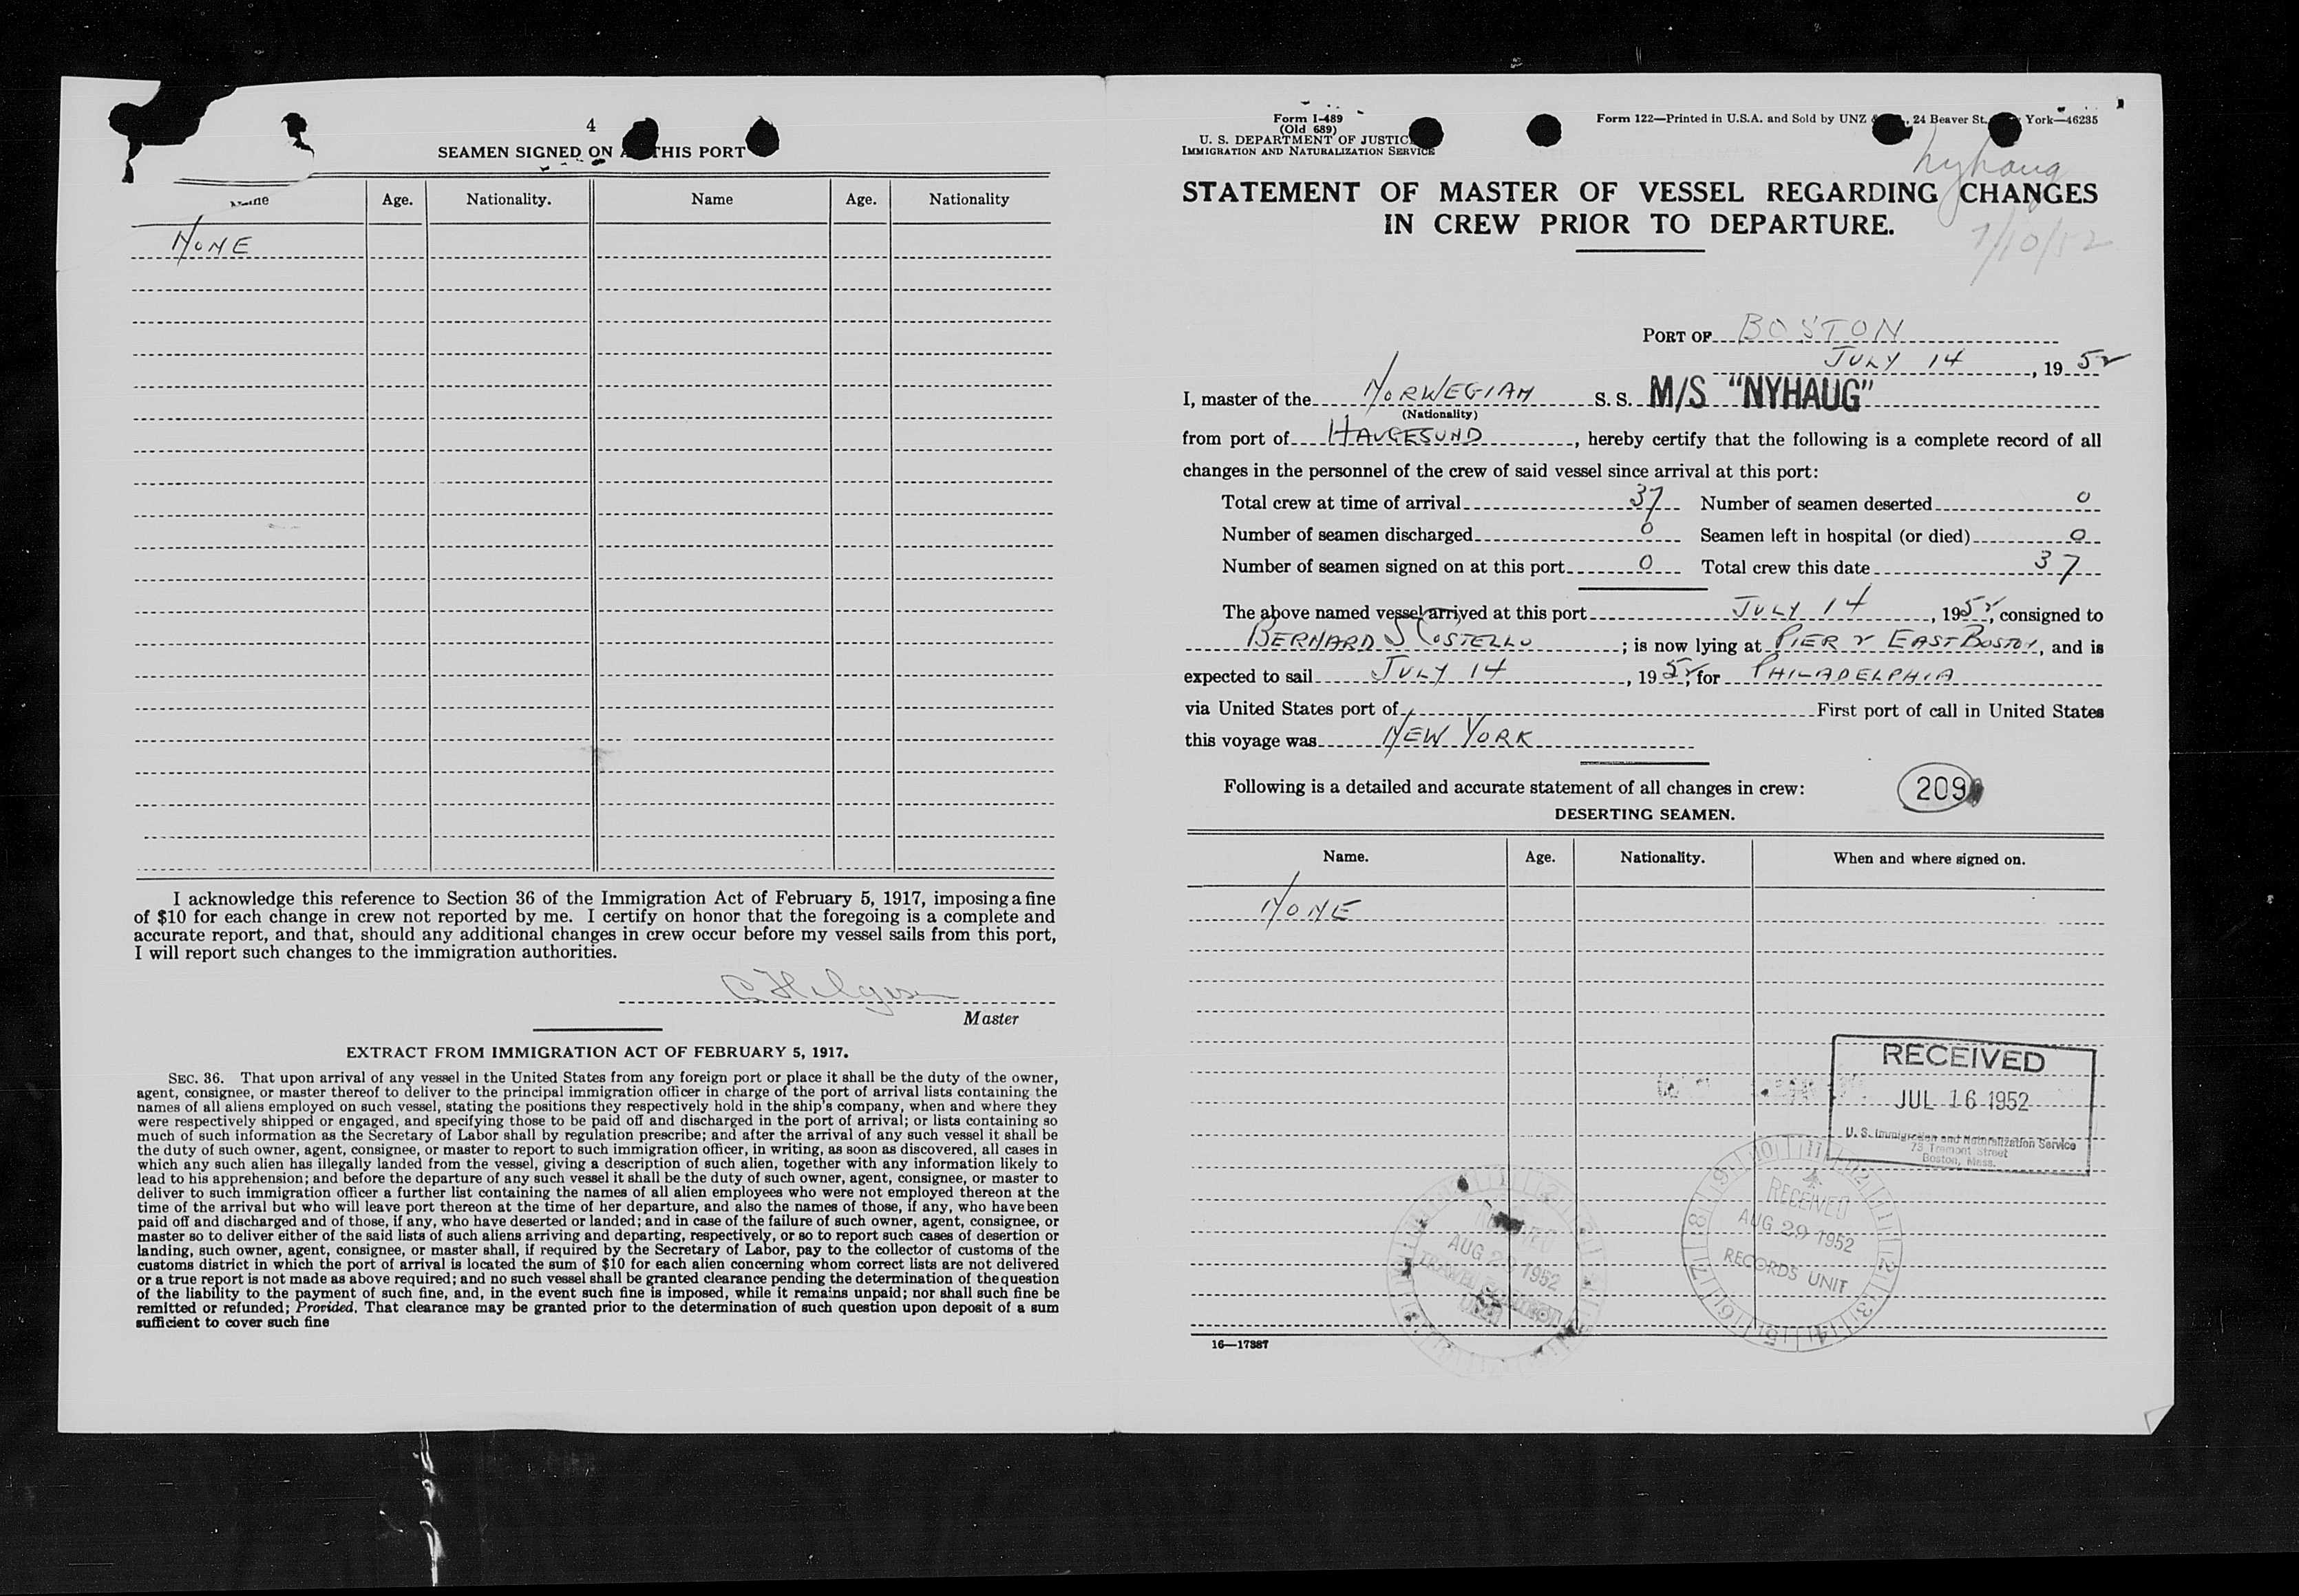 4
SEAMEN SIGNED ON THIS PORT
Age. Nationality. Name Age. Nationality
NONE
I acknowledge this reference to Section 36 of the Immigration Act of February 5, 1917, imposing a fine
of $10 for each change in crew not reported by me. I certify on honor that the foregoing is a complete and
accurate report, and that, should any additional changes in crew occur before my vessel sails from this port,
I will report such changes to the immigration authorities.
C Helgesen
Master
EXTRACT FROM IMMIGRATION ACT OF FEBRUARY 5, 1917.
SEC. 36. That upon arrival of any vessel in the United States from any foreign port or place it shall be the duty of the owner,
agent, consignee, or master thereof to deliver to the principal immigration officer in charge of the port of arrival lists containing the
names of all aliens employed on such vessel, stating the positions they respectively hold in the ship's company, when and where they
were respectively shipped or engaged, and specifying those to be paid off and discharged in the port of arrival; or lists containing so
much of such information as the Secretary of Labor shall by regulation prescribe; and after the arrival of any such vessel it shall be
the duty of such owner, agent, consignee, or master to report to such immigration officer, in writing, as soon as discovered, all cases in
which any such alien has illegally landed from the vessel, giving a description of such alien, together with any information likely to
lead to his apprehension; and before the departure of any such vessel it shall be the duty of such owner, agent, consignee, or master to
deliver to such immigration officer a further list containing the names of all alien employees who were not employed thereon at the
time of the arrival but who will leave port thereon at the time of her departure, and also the names of those, if any, who have been
paid off and discharged and of those, if any, who have deserted or landed; and in case of the failure of such owner, agent, consignee, or
master so to deliver either of the said lists of such aliens arriving and departing, respectively, or so to report such cases of desertion or
landing, such owner, agent, consignee, or master shall, if required by the Secretary of Labor, pay to the collector of customs of the
customs district in which the port of arrival is located the sum of $10 for each alien concerning whom correct lists are not delivered
or a true report is not made as above required; and no such vessel shall be granted clearance pending the determination of the question
of the liability to the payment of such fine, and, in the event such fine is imposed, while it remains unpaid; nor shall such fine be
remitted or refunded; Provided, That clearance may be granted prior to the determination of such question upon deposit of a sum
sufficient to cover such fine
Form I-489
(Old 689)
U. S. DEPARTMENT OF JUSTICE
IMMIGRATION AND NATURALIZATION SERVICE
Form 122—Printed in U.S.A. and Sold by UNZ 24 Beaver St. York—46235
Nyhaug
7/10/52
STATEMENT OF MASTER OF VESSEL REGARDING CHANGES
IN CREW PRIOR TO DEPARTURE.
PORT OF BOSTON
JULY 14, 1952
I, master of the NORWEGIAN S. S. M/S "NYHAUG"
(Nationality)
from port of HAUGESUND, hereby certify that the following is a complete record of all
changes in the personnel of the crew of said vessel since arrival at this port:
Total crew at time of arrival 37 Number of seamen deserted 0
Number of seamen discharged 0 Seamen left in hospital (or died) 0
Number of seamen signed on at this port 0 Total crew this date 37
The above named vessel arrived at this port JULY 14, 1952, consigned to
BERNARD S COSTELLO; is now lying at PIER 2 EAST BOSTON, and is
expected to sail JULY 14, 1952, for PHILADELPHIA
via United States port of First port of call in United States
this voyage was NEW YORK
Following is a detailed and accurate statement of all changes in crew:
209
DESERTING SEAMEN.
Name. Age. Nationality. When and where signed on.
NONE
RECEIVED
JUL 16 1952
U. S. Immigration and Naturalization Service
73 Tremont Street
Boston, Mass.
10 11 12 1 2 3 4 5 6 7 8 9
RECEIVED
AUG 29 1952
RECORDS UNIT
AUG 1952
16—17387